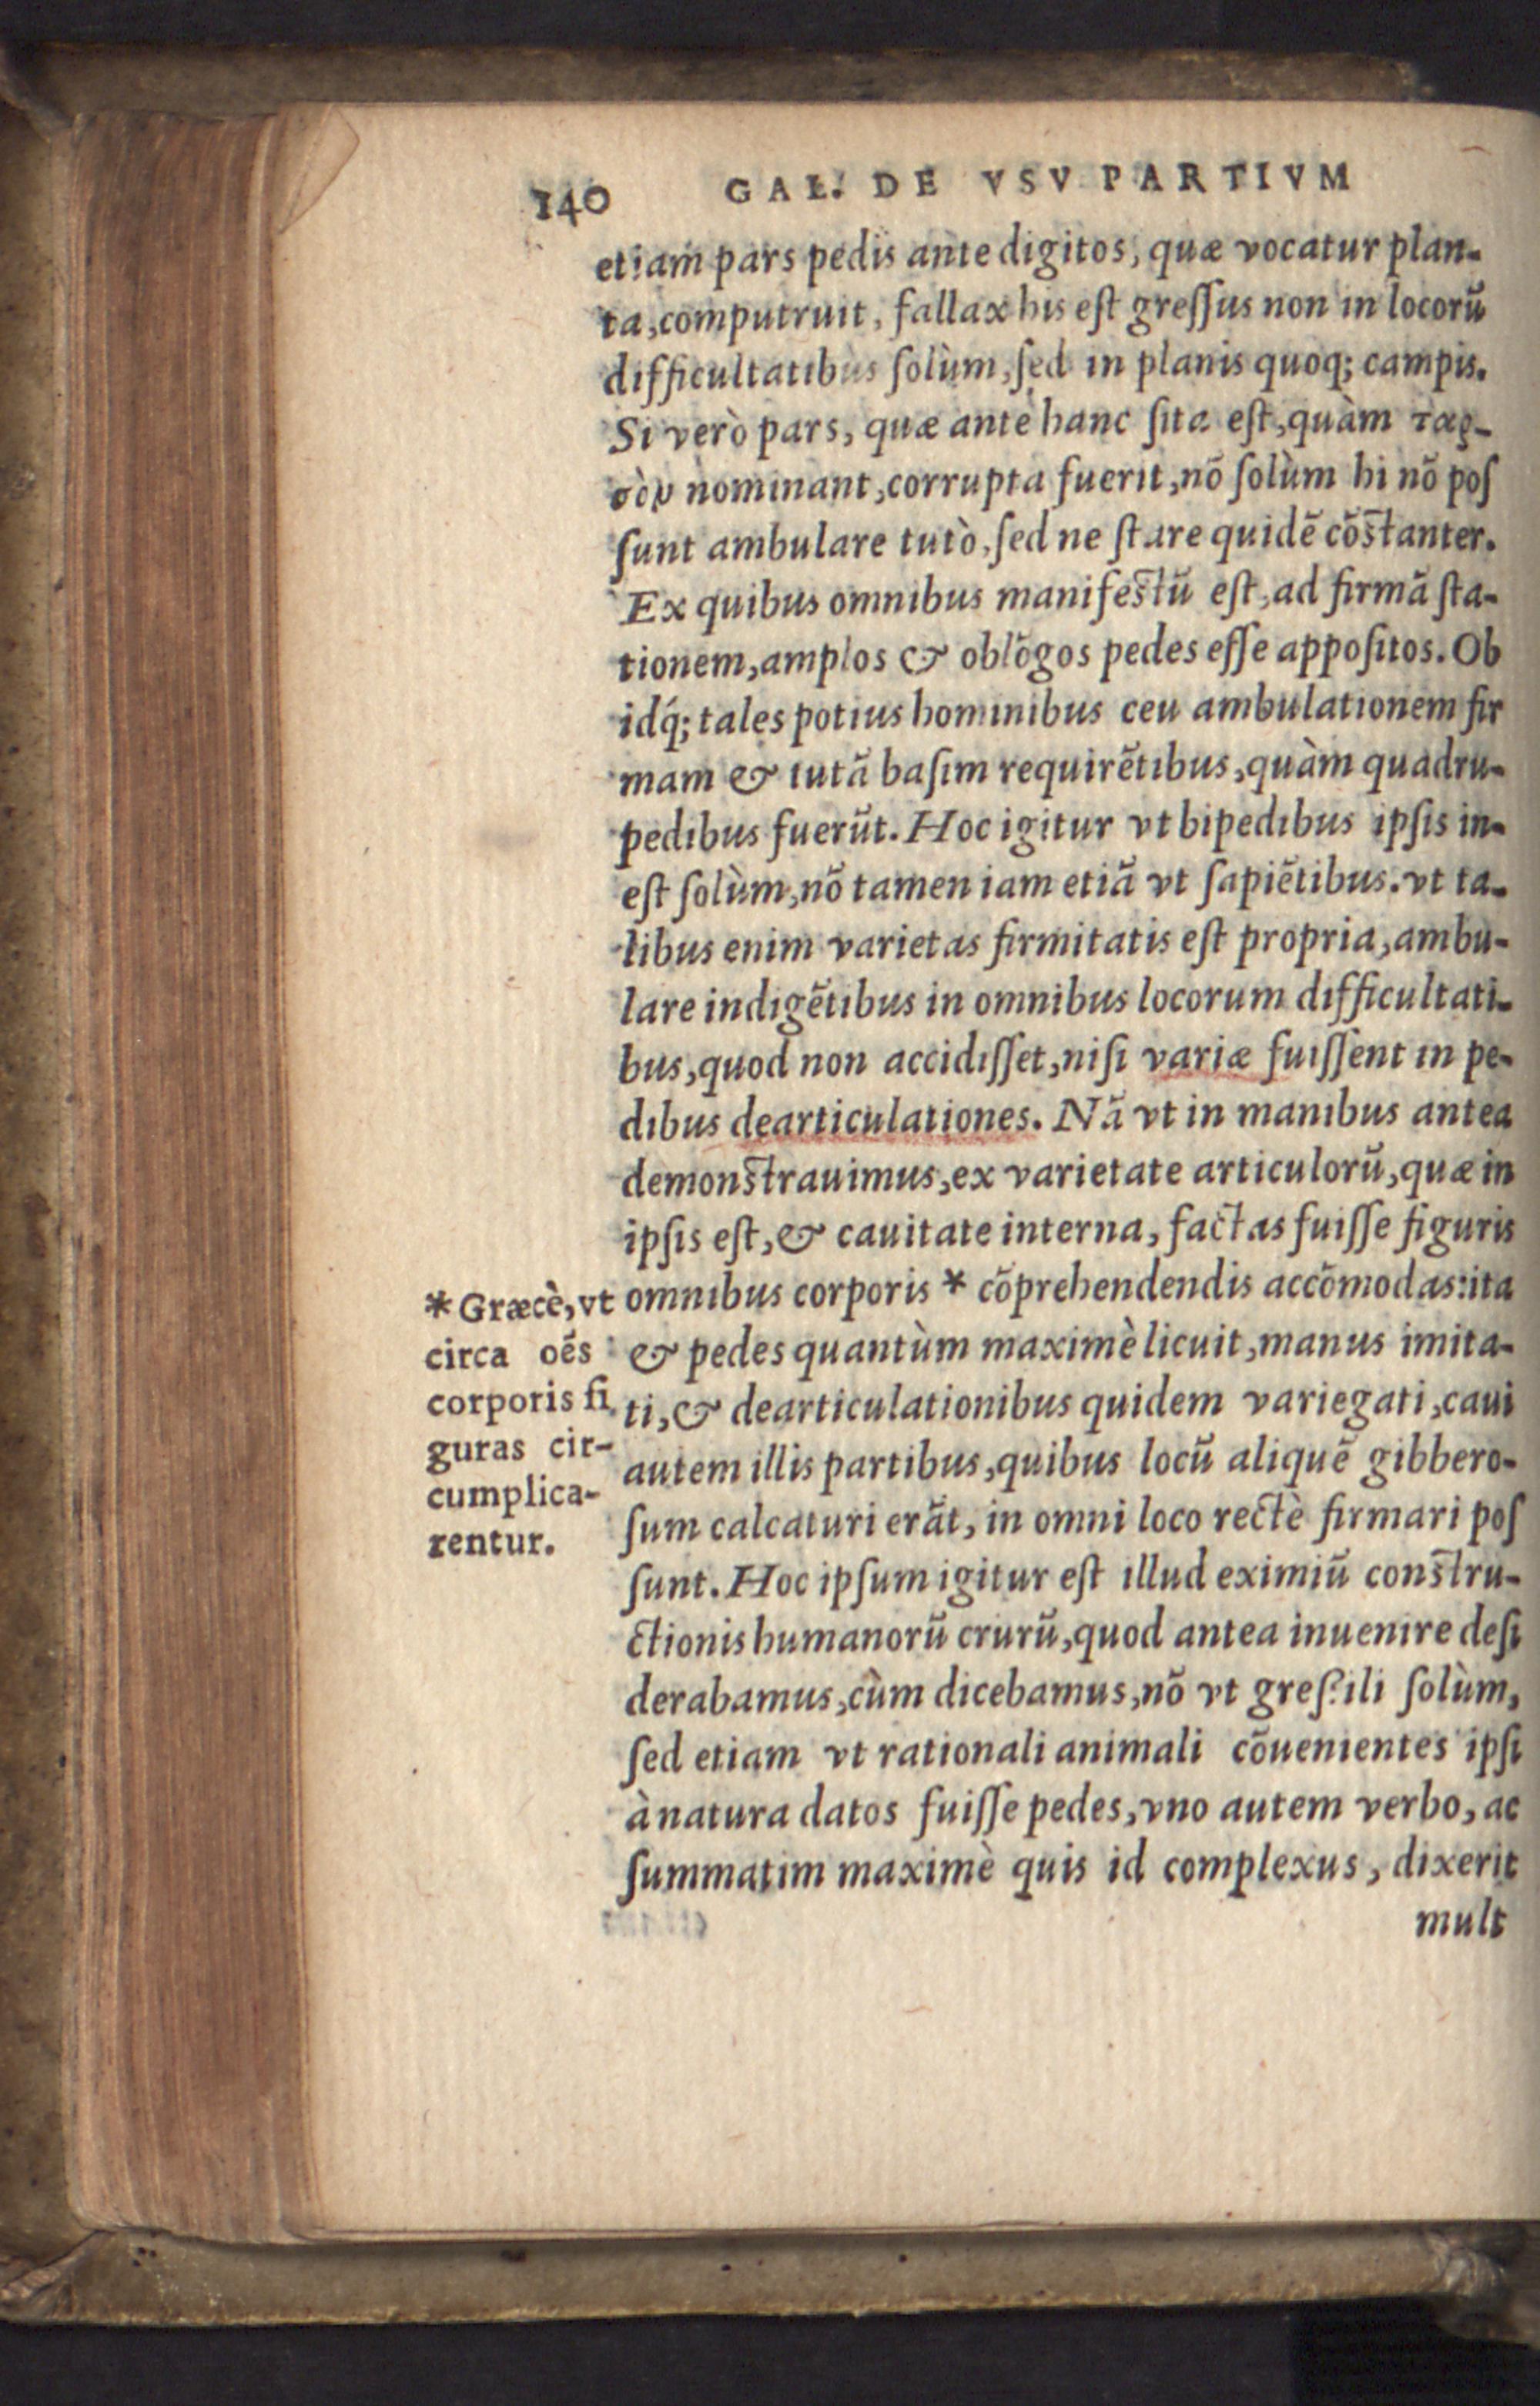 140 GAL. DE VSV PARTIVM
etiam pars pedis ante digitos, quæ vocatur plan-
ta, computruit, fallax his eſt greſſus non in locorũ
difficultatibus ſolùm, ſed in planis quoq; campis.
Si verò pars, quæ ante hanc ſita eſt, quàm ταρ-
σὸν nominant, corrupta fuerit, nõ ſolùm hi nõ poſ
ſunt ambulare tutò, ſed ne ſtare quidẽ cõſtanter.
Ex quibus omnibus manifeſtũ eſt, ad firmã ſta-
tionem, amplos & oblõgos pedes eſſe appoſitos. Ob
idq́; tales potius hominibus ceu ambulationem fir
mam & tutã baſim requirẽtibus, quàm quadru-
pedibus fuerũt. Hoc igitur vt bipedibus ipſis in-
eſt ſolùm, nõ tamen iam etiã vt ſapiẽtibus. vt ta-
libus enim varietas firmitatis eſt propria, ambu-
lare indigẽtibus in omnibus locorum difficultati-
bus, quod non accidiſſet, niſi variæ fuiſſent in pe-
dibus dearticulationes. Nã vt in manibus antea
demonſtrauimus, ex varietate articulorũ, quæ in
ipſis eſt, & cauitate interna, factas fuiſſe figuris
omnibus corporis * cõprehendendis accõmodas: ita
& pedes quantùm maximè licuit, manus imita-
ti, & dearticulationibus quidem variegati, caui
autem illis partibus, quibus locũ aliquẽ gibbero-
ſum calcaturi erãt, in omni loco rectè firmari poſ
ſunt. Hoc ipſum igitur eſt illud eximiũ conſtru-
ctionis humanorũ crurũ, quod antea inuenire deſi
derabamus, cùm dicebamus, nõ vt greſsili ſolùm,
ſed etiam vt rationali animali cõuenientes ipſi
à natura datos fuiſſe pedes, vno autem verbo, ac
ſummatim maximè quis id complexus, dixerit
mult
* Græcè, vt
circa oẽs
corporis fi
guras cir-
cumplica-
rentur.